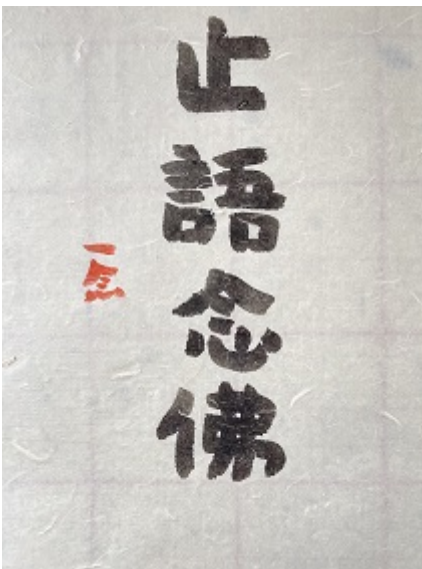 止語念佛
一念